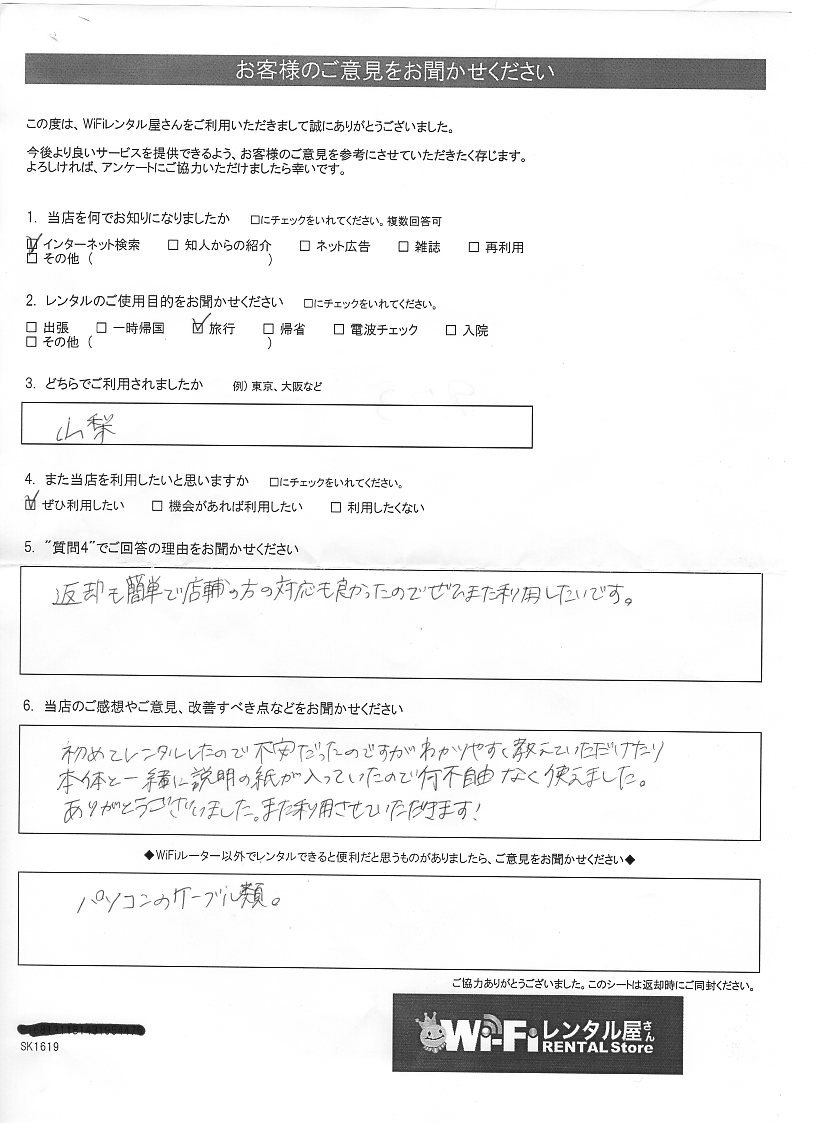 お客様のご意見をお聞かせください
この度は、WiFiレンタル屋さんをご利用いただきまして誠にありがとうございました。
今後より良いサービスを提供できるよう、お客様のご意見を参考にさせていただきたく存じます。
よろしければ、アンケートにご協力いただけましたら幸いです。
1. 当店を何でお知りになりましたか □にチェックをいれてください。複数回答可
☑ インターネット検索 □ 知人からの紹介 □ ネット広告 □ 雑誌 □ 再利用
□ その他 ( )
2. レンタルのご使用目的をお聞かせください □にチェックをいれてください。
□ 出張 □ 一時帰国 ☑ 旅行 □ 帰省 □ 電波チェック □ 入院
□ その他 ( )
3. どちらでご利用されましたか 例) 東京、大阪など
山梨
4. また当店を利用したいと思いますか □にチェックをいれてください。
☑ ぜひ利用したい □ 機会があれば利用したい □ 利用したくない
5. “質問4”でご回答の理由をお聞かせください
返却も簡単で店舗の方の対応も良かったのでぜひまた利用したいです。
6. 当店のご感想やご意見、改善すべき点などをお聞かせください
初めてレンタルしたので不安だったのですがわかりやすく教えていただけたり
本体と一緒に説明の紙が入っていたので何不自由なく使えました。
ありがとうございました。また利用させていただきます!
◆WiFiルーター以外でレンタルできると便利だと思うものがありましたら、ご意見をお聞かせください◆
パソコンのケーブル類。
ご協力ありがとうございました。このシートは返却時にご同封ください。
Wi-Fiレンタル屋さん
RENTAL Store
SK1619